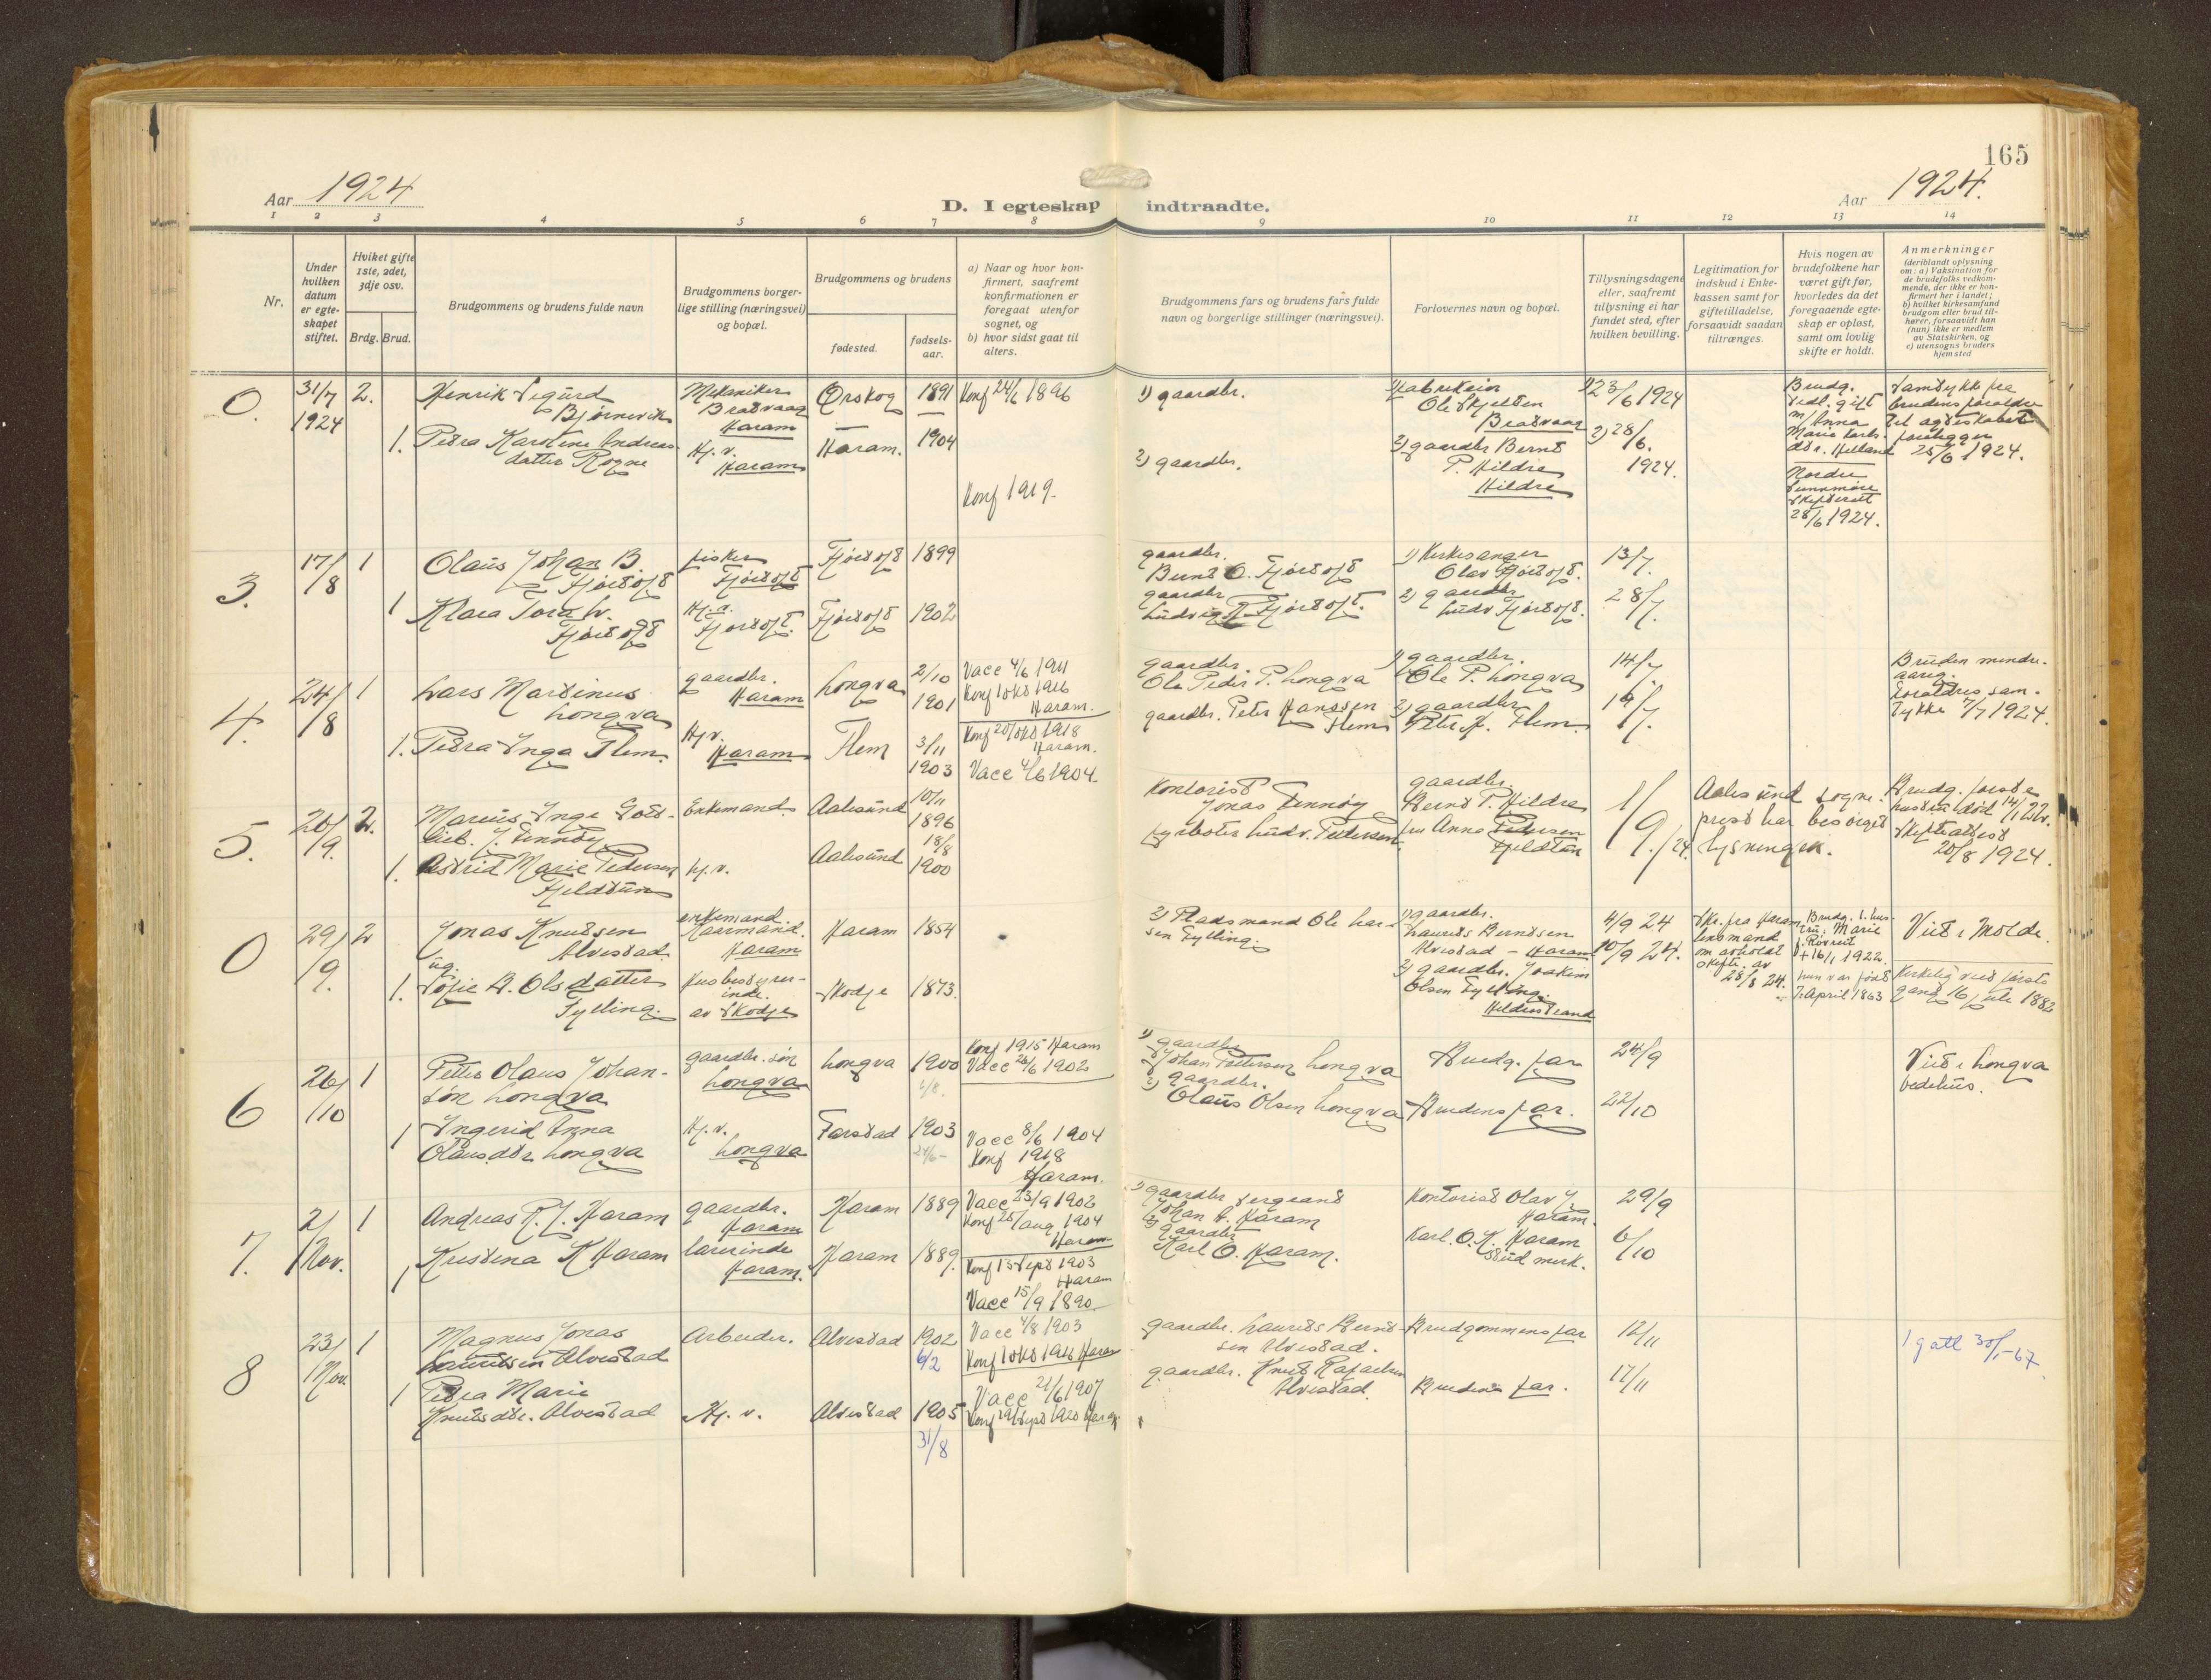 165
Aar 1924
D. I egteskap indtraadte.
Aar 1924.
1 2 3 4 5 6 7 8 9 10 11 12 13 14
Nr.
Under hvilken datum er egteskapet stiftet.
Hviket gifte 1ste, 2det, 3dje osv.
Brdg. Brud.
Brudgommens og brudens fulde navn
Brudgommens borgerlige stilling (næringsvei) og bopæl.
Brudgommens og brudens
fødested.
fødselsaar.
a) Naar og hvor konfirmert, saafremt konfirmationen er foregaat utenfor sognet, og
b) hvor sidst gaat til alters.
Brudgommens fars og brudens fars fulde navn og borgerlige stillinger (næringsvei).
Forlovernes navn og bopæl.
Tillysningsdagene eller, saafremt tillysning ei har fundet sted, efter hvilken bevilling.
Legitimation for indskud i Enkekassen samt for giftetilladelse, forsaavidt saadan tiltrænges.
Hvis nogen av brudefolkene har været gift før, hvorledes da det foregaaende egteskap er opløst, samt om lovlig skifte er holdt.
Anmerkninger
(deriblandt oplysning om: a) Vaksination for de brudefolks vedkommende, der ikke er konfirmert her i landet; b) hvilket kirkesamfund brudgom eller brud tilhører, forsaavidt han (hun) ikke er medlem av Statskirken, og c) utensogns bruders hjemsted
0. 31/7 1924 2.
Henrik Sigurd
Bjørnevik
Mekaniker
Bratvaag
Haram
Ørskog 1891
Konf 24/6 1896
1) gaardbr.
1) fabrikeier
Ole Skjelten
Bratvaag
1) 23/6 1924
Brudg.
tidl. gift
m/ Anna
Marie Karls-
dtr. Helland
Nordre
Sunnmøre
Skifterett
28/6 1924.
Samtykke fra
brudens foraldre
til agteskabet
forelegger
25/6 1924.
1. Petra Karoline Andreas-
datter Rogne
Hj. v.
Haram
Haram. 1904
Konf 1919.
2) gaardbr.
2) gaardbr Bernt
P. Hildre
Hildre
2) 28/6.
1924.
3. 17/8 1
Olaus Johan B.
Fjørtoft
fisker
Fjørtoft
Fjørtoft 1899
gaardbr.
Bernt O. Fjørtoft
1) Kirkesanger
Olav Fjørtoft.
13/7.
1 Klara Tora L.
Fjørtoft
Hj. a.
Fjørtoft.
Fjørtoft 1902
gaardbr
Ludvig K Fjørtoft.
2) gaardbr
Ludv Fjørtoft.
28/7.
4. 24/8 1
Lars Martinus
Longva
gaardbr.
Haram
Longva
2/10 1901
Vacc 4/6 1911
Konf 1 okt 1916
Haram.
gaardbr.
Ole Peder P. Longva
1) gaardbr.
Ole P. Longva
14/7
Bruden mindre-
aarig.
Foraldres sam-
tykke 7/7 1924.
1. Petra Inga Flem.
Hj v.
Haram
Flem
3/11 1903
Konf 20/okt 1918
Haram.
Vacc 4/6 1904.
gaardbr. Peter Hanssen
Flem
2) gaardbr
Peter H. Flem.
14/7.
5. 20/9. 2.
Marius Inge Gott-
lieb. J. Finnøy
Enkemand.
Aalesund
10/11 1896
Kontorist
Jonas Finnøy
gaardbr
Bernt P. Hildre
1/9. /24.
Aalesund sogne-
prest har besørget
lysningen.
Brudg. første
hustru død 14/1 22.
Skifteattest
20/8 1924.
1. Astrid Marie Pedersen
Fjeldtun
hj. v.
Aalesund
18/8 1900
fyrbøter Ludv. Pettersen.
fru Anna Pedersen
Fjeldtun
0 29/9. 2
Jonas Knutsen
Alvestad.
og
enkemand.
Kaarmand.
Haram
Haram 1854
1) gaardbr.
Laurits Berntsen
Alvestad - Haram
4/9 24
Skr. fra Haram
lensmand
om avholdt
skifte av
28/8 24.
Brudg. 1. hus-
tru. Marie
f. Røvrit
+ 16/1 1922.
hun var født
7 April 1863
Viet i Molde.
Kirkelig viet første
gang 16 juli 1882
1. Sofie A. Olsdatter
Fylling.
Husbestyrer-
inde.
av Skodje
Skodje 1873.
2) Pladsmand Ole Lar-
sen Fylling.
2) gaardbr. Joakim
Olsen Fylling.
Hildrestrand
10/9 24.
6 26/10 1
Petter Olaus Johan-
søn Longva
gaardbr. søn
Longva
Longva 1900
6/8.
Konf 1915 Haram
Vacc 26/6 1902
1) gaardbr
Johan Pettersen Longva
Brudg. far
24/9
Viet i Longva
bedehus.
1 Ingerid Anna
Olausdtr Longva
Hj. v.
Longva
Farstad 1903
24/6
Vacc 8/6 1904
Konf 1918
Haram.
2) gaardbr.
Olaus Olsen Longva
Brudens far.
22/10
7. 2/Nov. 1
Andreas R. J. Haram
gaardbr.
Haram
Haram 1889
Vacc 23/9 1902
Konf 25/aug 1904
Haram
1) gaardbr sergeant
Johan A. Haram
Kontorist Olav J.
Haram.
29/9
1 Kristina K Haram
lærerinde
Haram.
Haram 1889.
Konf 13 Sept 1903
Haram
Vacc 15/9 1890
2) gaardbr
Karl O. Haram.
Karl. O. K. Haram
stud merk.
6/10
8 23/Nov. 1
Magnus Jonas
Lauritssen Alvestad
Arbeider.
Alvestad 1902
6/2
Vacc 4/8 1903
Konf 1 okt 1916 Haram
gaardbr. Laurits Bernt-
sen Alvestad.
Brudgommens far
12/11
1 gatt 30/1-67
1 Petra Marie
Knutsdtr. Alvestad
Hj. v.
Alvestad 1905
31/8
Vacc 21/6 1907
Konf 19/Sept 1920 Haram
gaardbr. Knut Rafaelsen
Alvestad.
Brudens far.
17/11